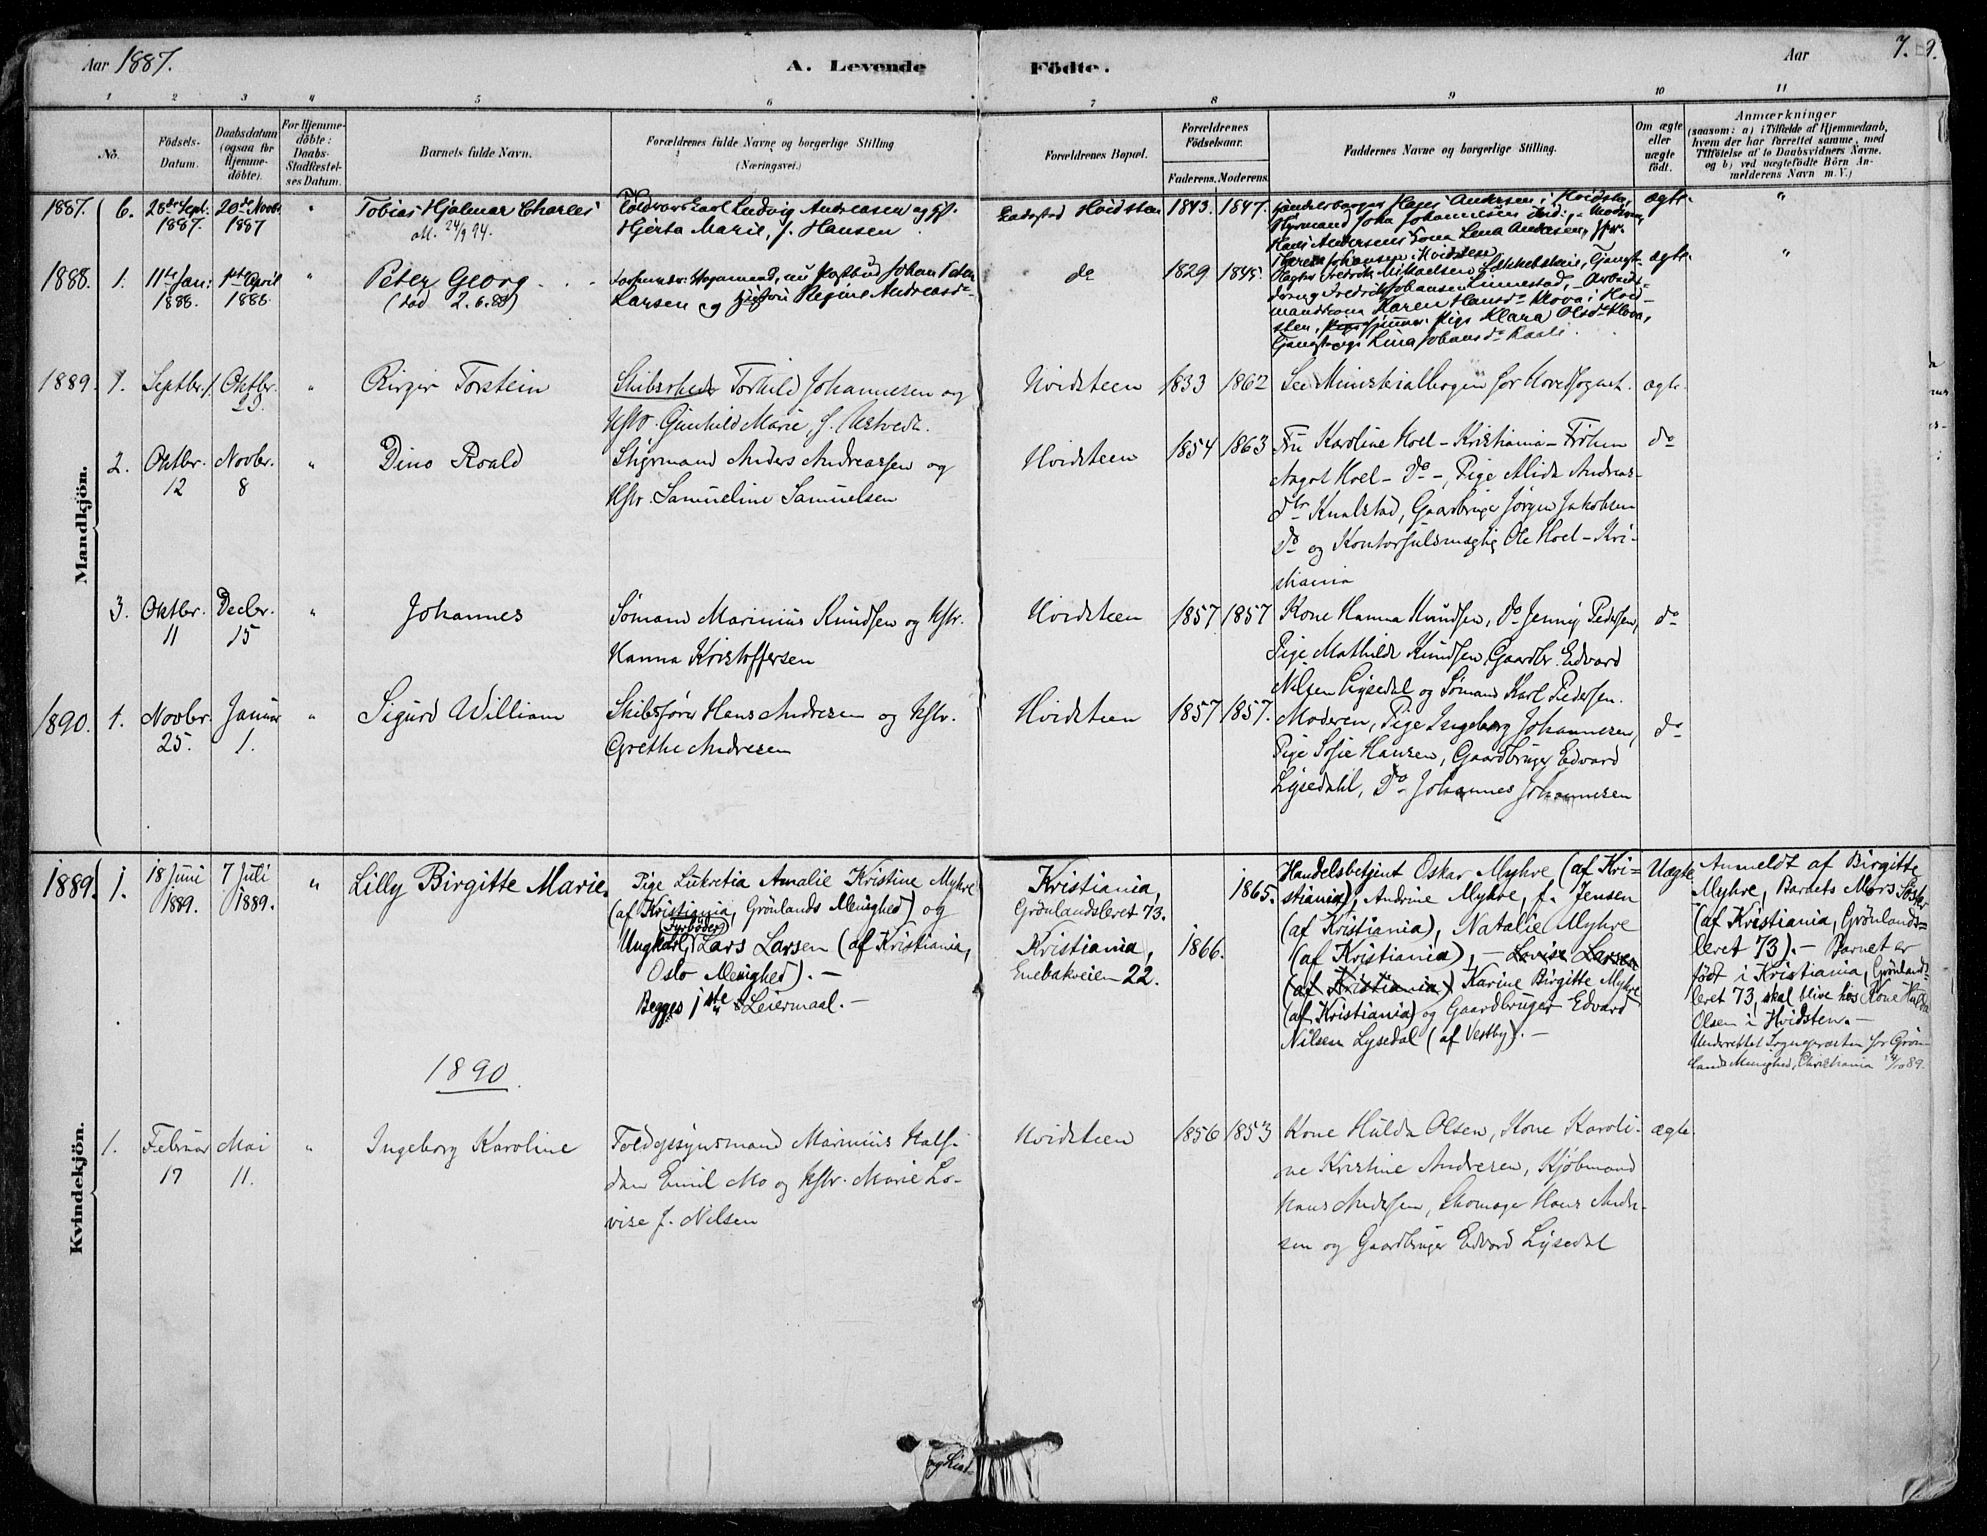 Aar 1887.
A. Levende Födte.
Aar
7.
1 2 3 4 5 6 7 8 9 10 11
No.
Födsels-Datum.
Daabsdatum (ogsaa for Hjemme-döbte).
For Hjemme-döbte: Daabs-Stadfæstel-ses Datum.
Barnets fulde Navn.
Forældrenes fulde Navne og borgerlige Stilling (Næringsvei.)
Forældrenes Bopæl.
Forældrenes Födselsaar.
Faderens. Moderens.
Faddernes Navne og borgerlige Stilling.
Om ægte eller uægte födt.
Anmærkninger
(saasom: a) i Tilfælde af Hjemmedaab,
hvem der har forrettet samme, med
Tilföielse af to Daabsvidners Navne,
og b) ved uægtefödte Börn An-
melderens Navn m. V.)
Mandkjön.
1887. 6. Sept. 1887. 20de Novbr. 1887 " Tobias Hjalmar Charles
24/9 94.
Ludvig Andreasen og
Hjerta Marie, f. Hansen
Hvidsten 1843. 1847.
Hans Andersen i Hvidsten,
Johannesen
Lena Andersen,
Johansen, Hvidsten
ægte. "
1888. 1. 11te Jan: 1888. 1ste April 1888 " Peter Georg
(død 2.6.88)
Johan Peter
Larsen og Hustru Regine Andreasd.
do 1829 1845.
Fredrik Mikaelsen
Fredrik Johansen Linnestad,
Karen Hansdr. Klova i Hvid-
sten, Pige Klara Olsdr. Klova,
Lina Johansdr.
ægte "
1889. 1. Septbr. 1. Oktbr. 29. " Birger Torstein
Skibsreder Torkild Johannesen og
Hstr. Gunhild Marie, f.
Hvidsteen 1833 1862 See Ministerialbogen for Hovedsognet. ægte.
2. Oktbr. 12 Novbr. 8 " Dino Roald
Styrmand Anders Andreassen og
Hstr. Samueline Samuelsen
Hvidsteen 1854 1863
Fru Karoline Hoel - Kristiania - Frøken
Aagot Hoel - do -, Pige Alida Andreas-
dtr Knalstad, Gaardbruger Jørgen Jakobsen
do og Kontorfuldmægtig Ole Hoel - Kri-
stiania
do
3. Oktbr. 11 Decbr. 15 " Johannes
Sømand Marinius Knudsen og Hstr.
Hanna Kristoffersen
Hvidsteen 1857 1857
Kone Hanna Knudsen, do Jenny Pedersen,
Pige Mathilde Knudsen, Gaardbr. Edvard
Nilsen Lysedal og Sømand Karl Pedersen.
do
1890. 1. Novbr. 25. Januar 1. " Sigurd William
Skibsfører Hans Andresen og Hstr.
Grethe Andresen
Hvidsteen 1857 1857.
Moderen, Pige Ingeborg Johannesen,
Pige Sofie Hansen, Gaardbruger Edvard
Lysedahl, do Johannes Johannesen
do
Kvindekjön.
1889. 1. 18 Juni 1889. 7 Juli 1889. " Lilly Birgitte Marie.
Pige Lukretia Amalie Kristine Myhre
(af Kristiania, Grönlands Menighed) og
Fyrböder
Ungkarl Lars Larsen (af Kristiania,
Oslo Menighed). -
Begges 1ste Leiermaal. -
Kristiania,
Grönlandsleret 73.
Kristiania,
Enebakveien 22.
1866. 1865.
Handelsbetjent Oskar Myhre (af Kri=
stiania), Andrine Myhre, f. Jensen
(af Kristiania), Natalie Myhre
(af Kristiania), - Lovise Larsen
(af Kristiania) Karine Birgitte Myhre
(af Kristiania) og Gaardbruger Edvard
Nilsen Lysedal (af Vestby). -
Uægte
Anmeldt af Birgitte
Myhre, Barnets Mors Söster
(af Kristiania, Grönlands=
leret 73). - Barnet er
födt i Kristiania, Grönlands-
leret 73, skal blive hos Kone Hulda
Olsen i Hvidsten. -
Underrettet Sognepræsten for Grön-
lands Menighed, Christiania /10 89.
1890.
1. Februar 17 Mai 11. " Ingeborg Karoline
Toldopsynsmand Marinius Half-
dan Emil Mo og Hstr. Marie Lo-
vise f. Nilsen
Hvidsteen 1856 1853
Kone Hulda Olsen, Kone Karoli-
ne Kristine Andresen, Kjøbmand
Hans Andersen, Skomager Hans Andre-
sen og Gaardbruger Edvard Lysedal
ægte